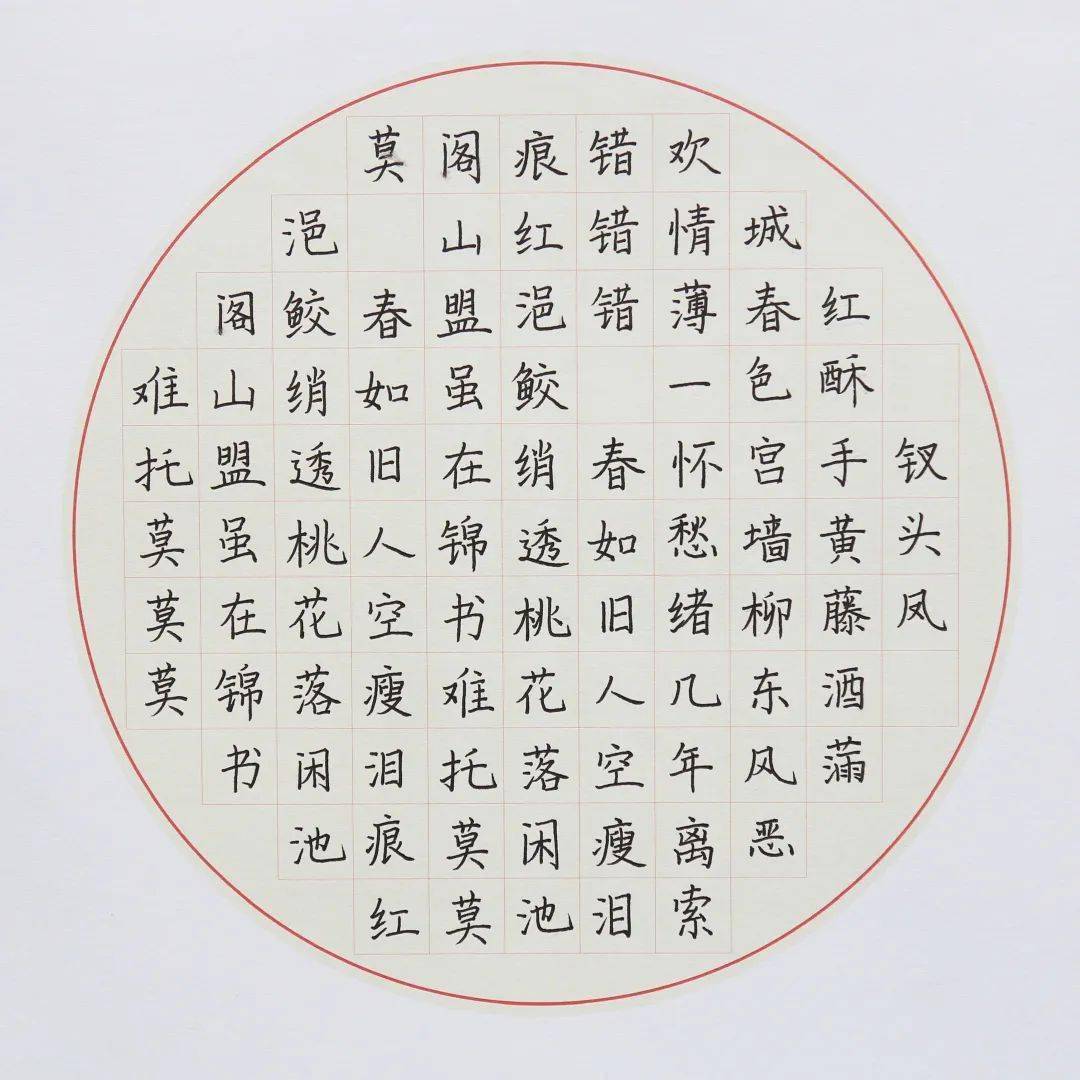 钗头凤
红酥手黄藤酒满
城春色宫墙柳东风恶
欢情薄一怀愁绪几年离索
错错错 春如旧人空瘦泪
痕红浥鲛绡透桃花落闲池
阁山盟虽在锦书难托莫莫
莫 春如旧人空瘦泪痕红
浥鲛绡透桃花落闲池
阁山盟虽在锦书
难托莫莫莫